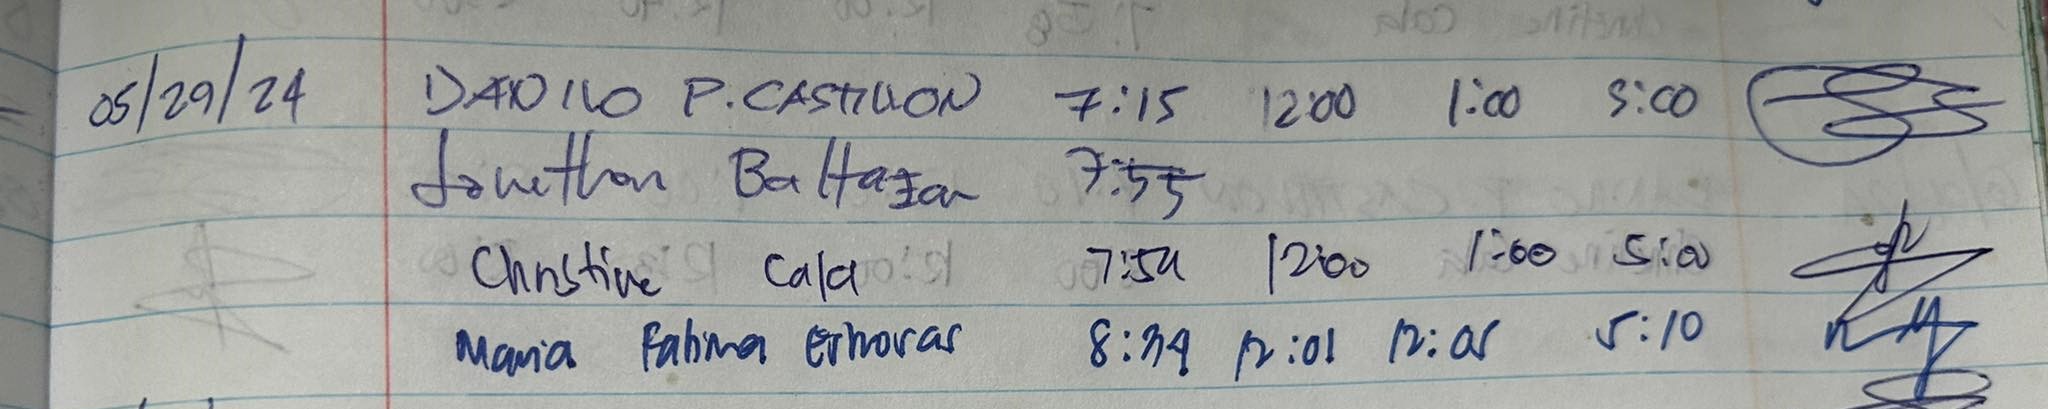 05/29/24 DANILO P. CASTILLON 7:15 12:00 1:00 5:00
Jonathan Baltazar 7:55
Christine Cala 7:54 12:00 1:00 5:00
Maria Fatima 12:01 12:05 5:10